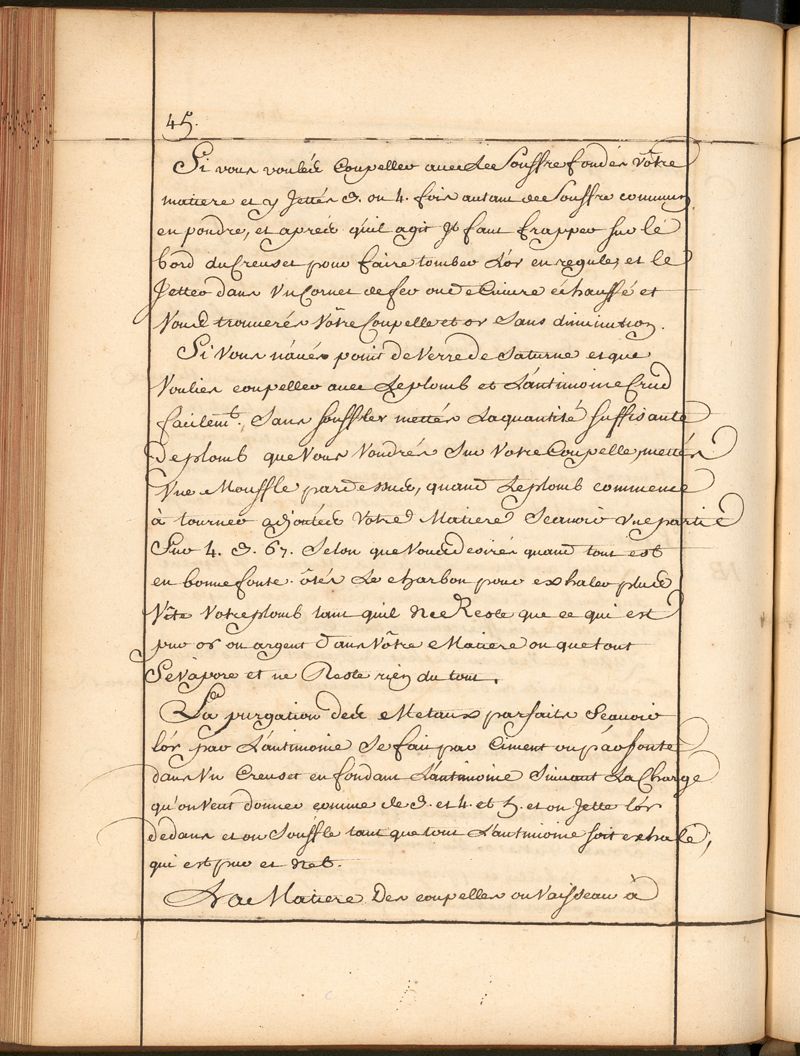 45.
Si vous voulés Coupeller avec Le Souffre fondés Vôtre
matiere et y Jettés 3. ou 4. fois autant de Souffre commun
en poudre, et aprés quil agit Jl faut frapper sur lé
bord du Creuset pour faire tomber L'or en regule, et le
Jetter dans Vn Cornet de fer ou de Cuiure échauffé et
Vous trouuerés Vôtre Coupelle et or Sans diminution.
Si Vous n'aués point de Verre de Saturne et que
Vouliés coupeller auec Le plomb et L'antimoine Crud
facilemt., Sans souffler mettés La quantité suffisante
De plomb que Vous Voudrés Sur Votre Coupelle, mettés
Vne Mouffle par dessus, quand Le plomb commence
à tourner adjoutés Votre Matiere Scauoir vne partie
Sur 4. 5. 67. Selon que Vous desirés quand tout est
en bonne fonte. ôtés Le charbon pour exhaler plus
Vîte Votre plomb tant quil ne Reste que ce qui est
pur or ou argent dans Vôtre Matiere ou que tout
S'évapore et ne Reste rien du tout.
La purgation des Metaux parfaits Scauoir
lór par L'antimoine Se fait par Ciment ou par fonte
dans Vn Creuset en fondant L'antimoine Suiuant La Charge
qu'on Veut donner comme de 3. et 4. et 5. et on Jette lór
dedans et on Souffle tant que tout L'antimoine soit exhalé,
qui est pur et net.
La Matiere Des coupelles ou Vaisseau à